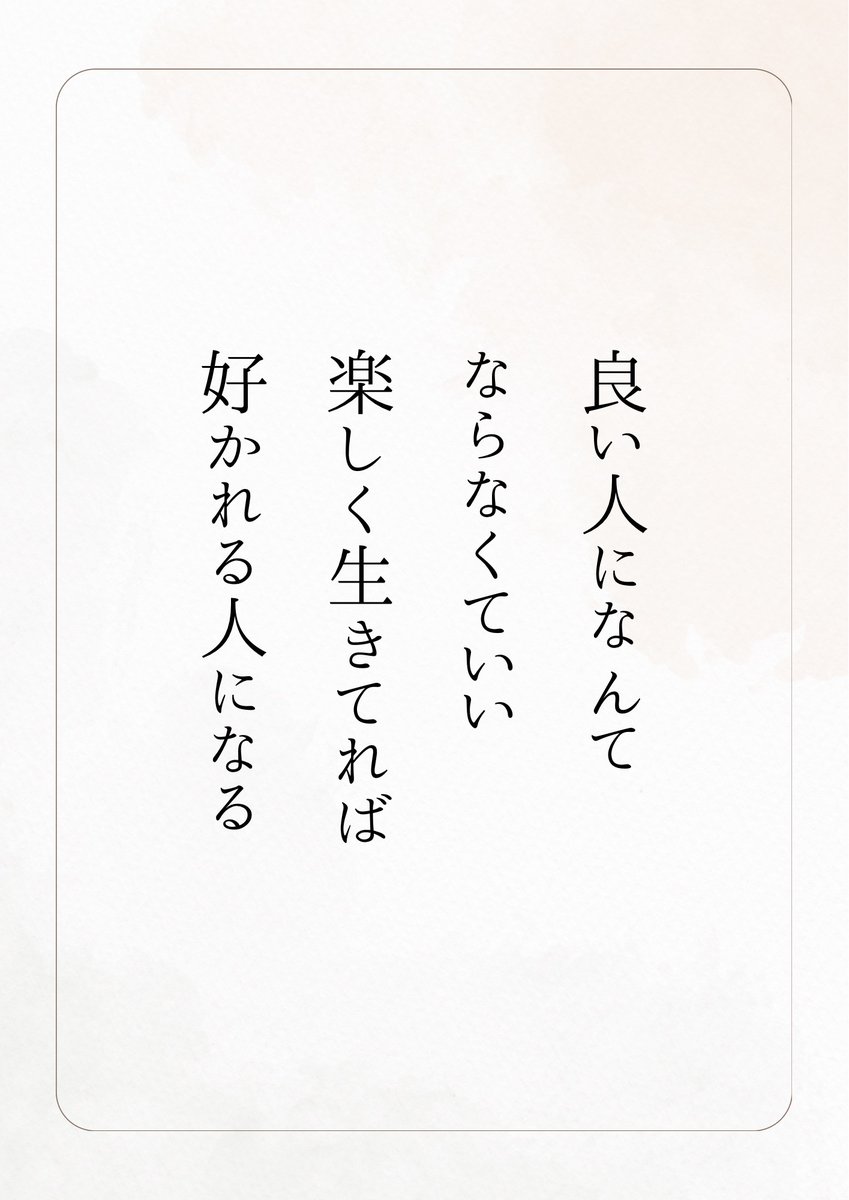 良い人になんて
ならなくていい
楽しく生きてれば
好かれる人になる